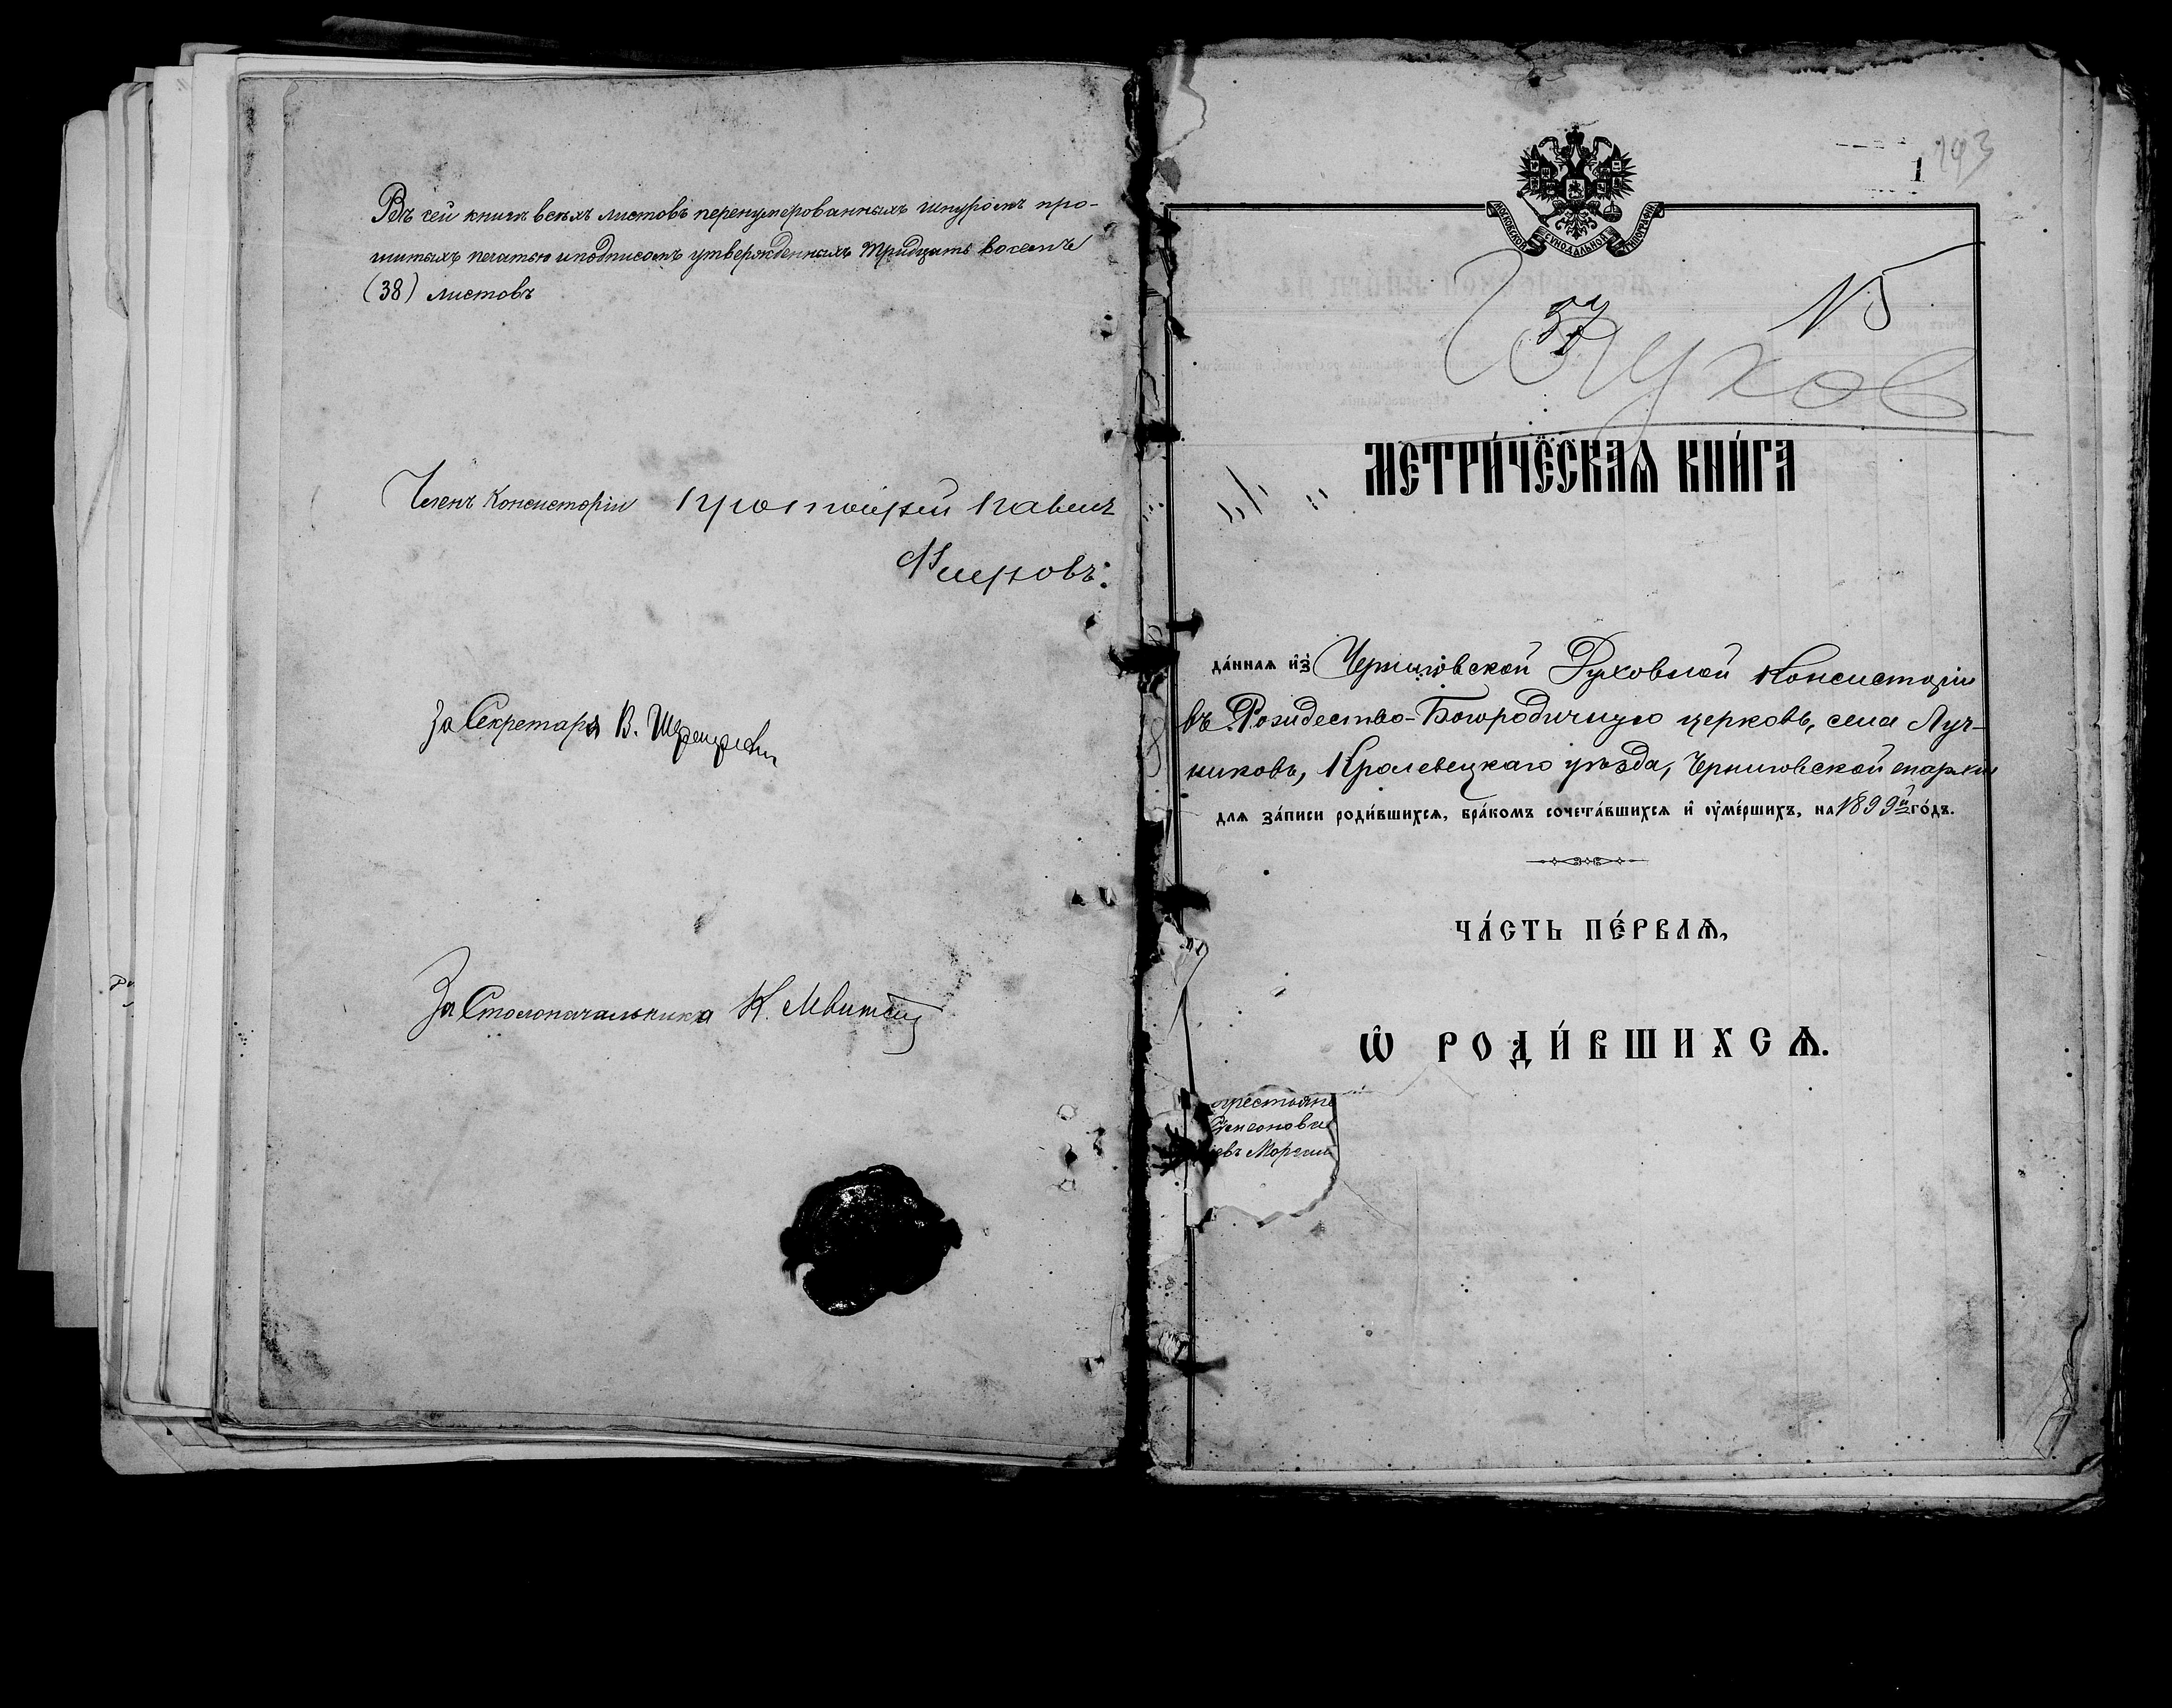 Въ сей книгѣ всѣхъ листовъ перенумерованныхъ шнуромъ про-
шитыхъ печатью и подписомъ утвержденныхъ тридцать восемь
(38) листовъ
Членъ Консисторіи Протоіерей Павелъ
За Секретаря В.
За Столоначальника К.
1
193
МОСКОВСКОЙ СѴНОДАЛЬНОЙ ТИПОГРАФІИ
57
15
МЕТРИ́ЧЕСКАѦ КНИ́ГА
да́ннаѧ и҆з̾ Черниговской Духовной Консисторіи
въ Рождество-Богородичную церковь, села Луч-
никовъ, Кролевецкаго уѣзда, Черниговской епархіи
длѧ за́писи роди́вшихсѧ, бра́комъ сочета́вшихсѧ и҆ ᲂу҆ме́ршихъ, на 1899й го́дъ.
ЧА́СТЬ ПЕ́РВАѦ,
Ѽ РОДИ́ВШИХСѦ.
крестьяне